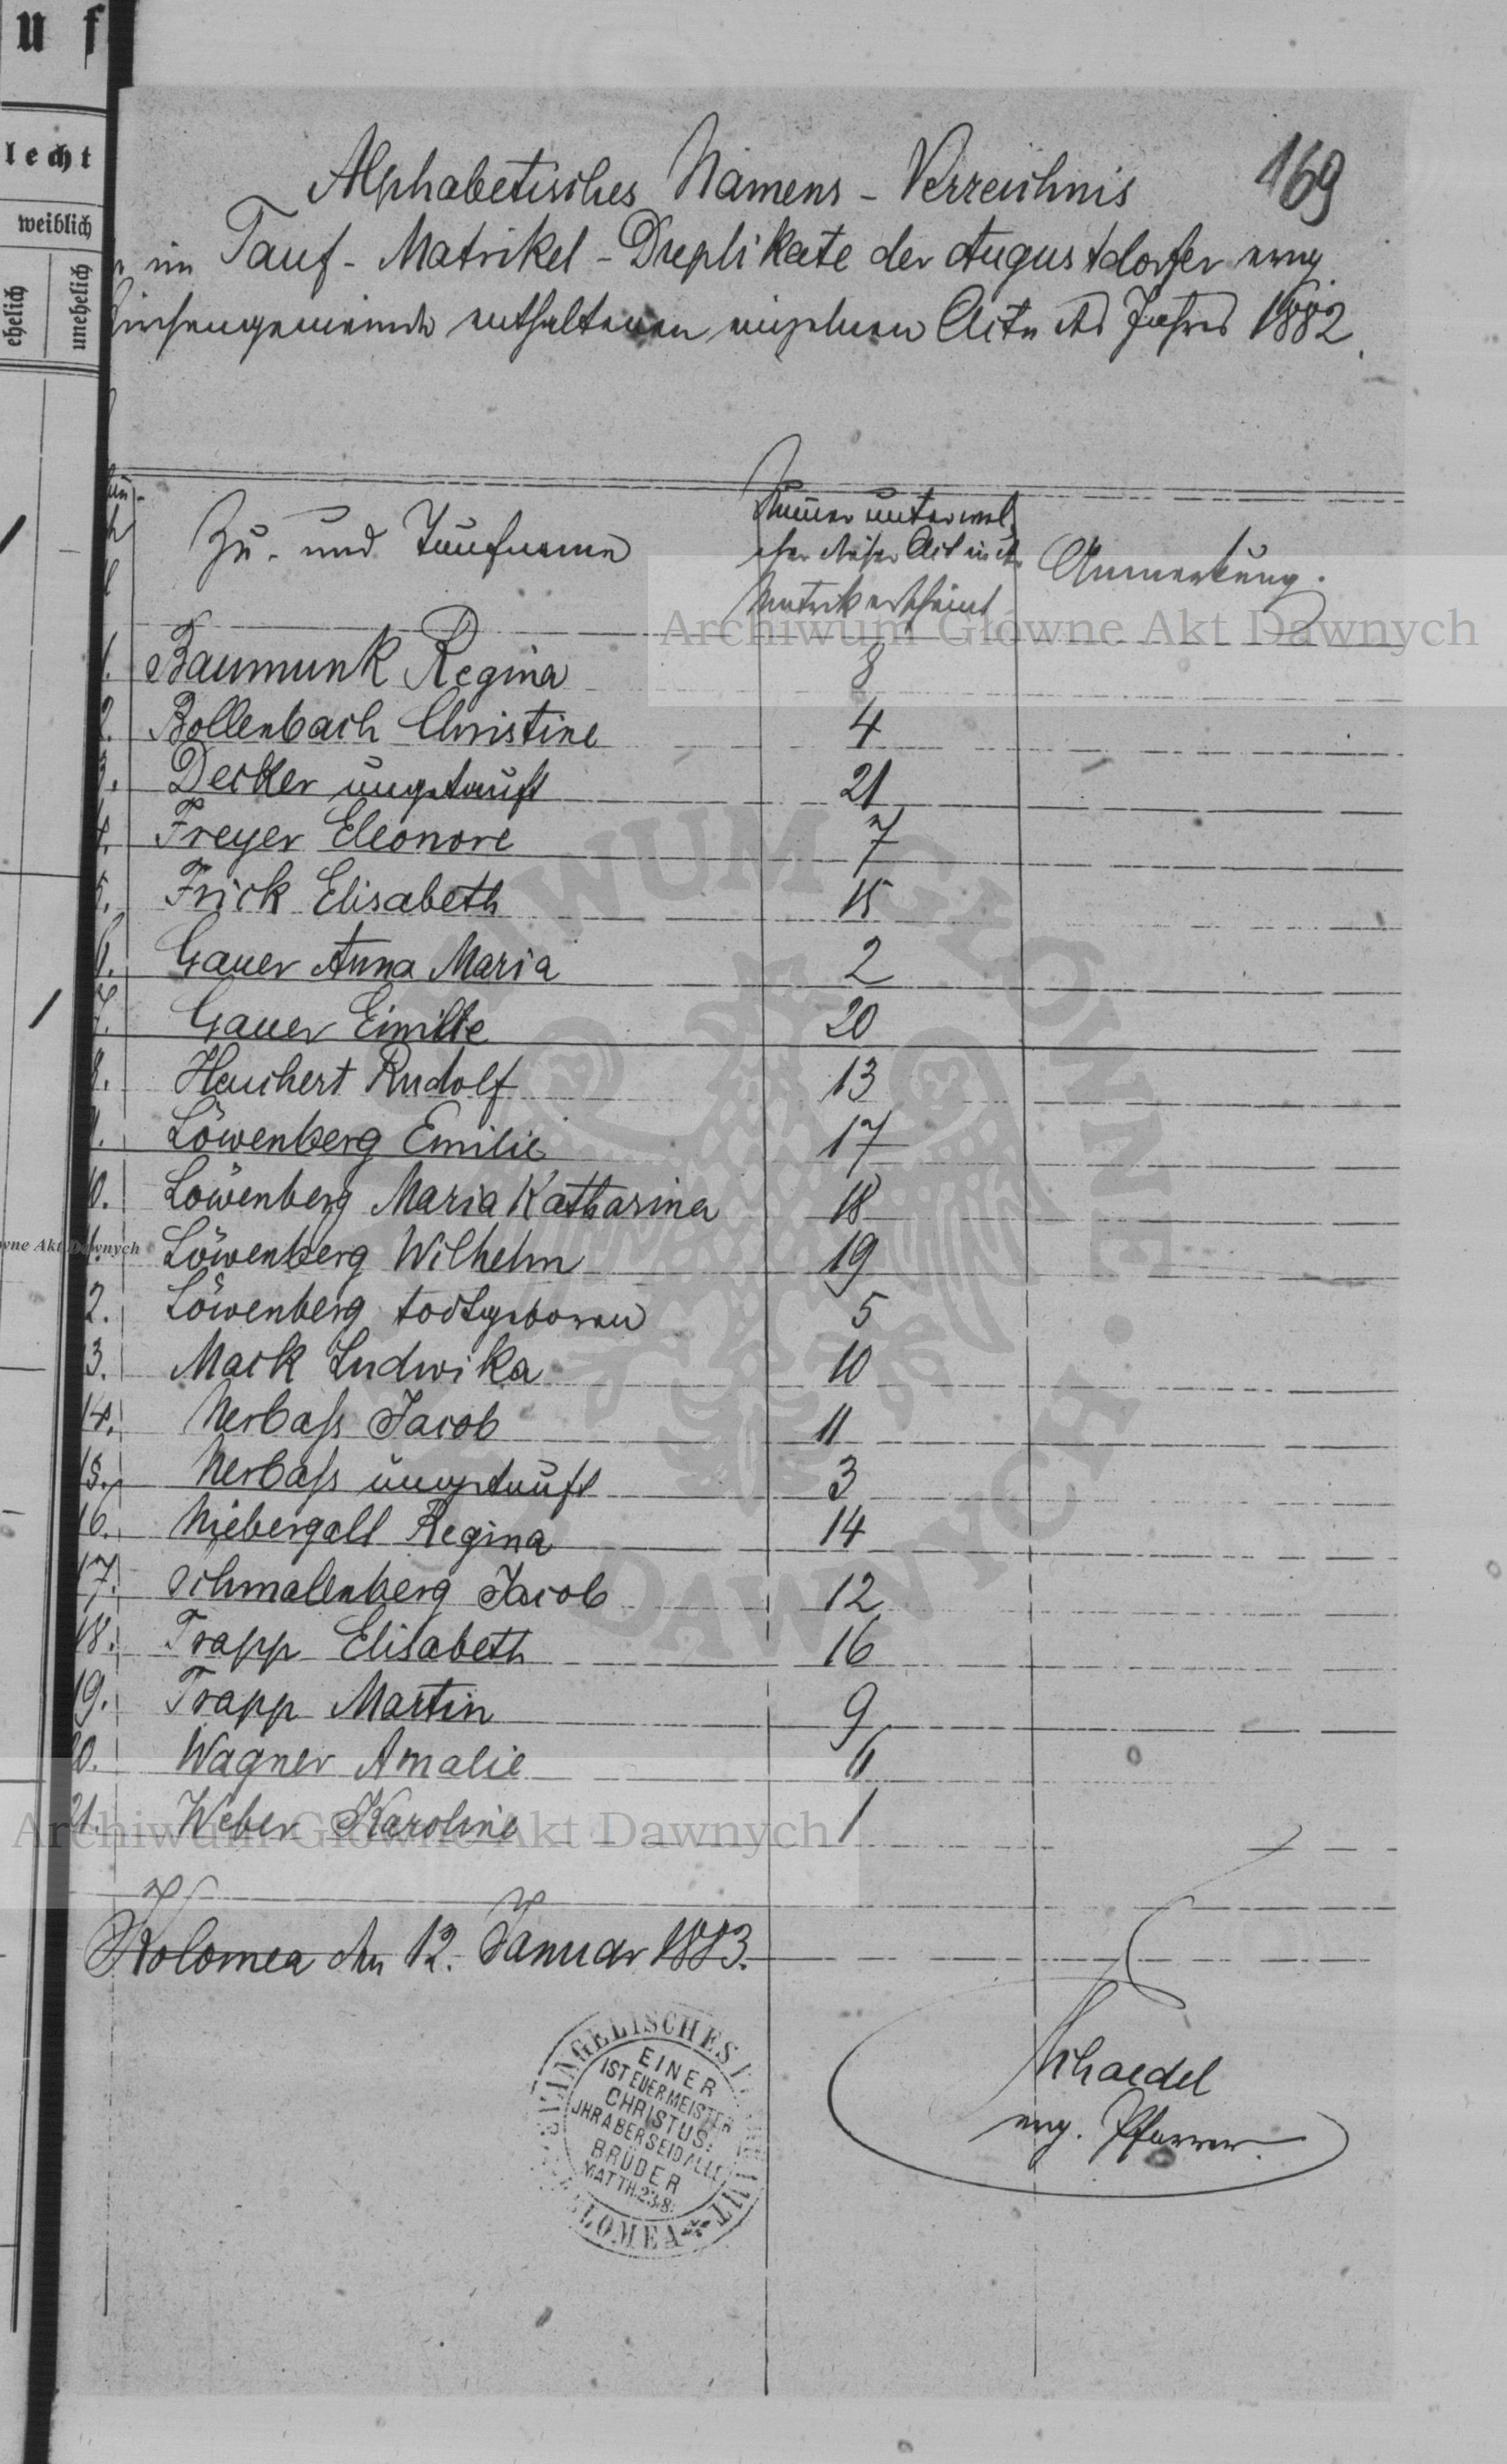 u f
lecht
weiblich
ehelich
unehelich
169
Alphabetisches Namens - Verzeichnis
im Tauf - Matrikel - Duplikate der Augustdorfer evang.
Kirchengemeinde enthaltenen einzelnen Acte des Jahres 1882.
Zu - und Taufname
Numer unter wel-
cher dieser Act in der
Matrik erscheint
Anmerkung.
Archiwum Główne Akt Dawnych
1. Baumunk Regina 8
2. Bollenbach Christine 4
3. Decker ungetauft 21
4. Freyer Eleonore 7
5. Frick Elisabeth 15
6. Gauer Anna Maria 2
7. Gauer Emilie 20
8. Hauchert Rudolf 13
9. Löwenberg Emilie 17
10. Löwenberg Maria Katharina 18
11. Löwenberg Wilhelm 19
12. Löwenberg todtgeboren 5
13. Mack Ludwika 10
14. Nerbass Jacob 11
15. Nerbass ungetauft 3
16. Niebergall Regina 14
17. Schmalenberg Jacob 12
18. Trapp Elisabeth 16
19. Trapp Martin 9
20. Wagner Amalie 6
21. Weber Karoline 1
Archiwum Główne Akt Dawnych
Kolomea den 12. Januar 1883.
Schaedel
evg. Pfarrer
EVANGELISCHES
EINER
IST EUER MEISTER
CHRISTUS:
JHR ABER SEID ALLE
BRÜDER
MATTH. 23,8.
KOLOMEA